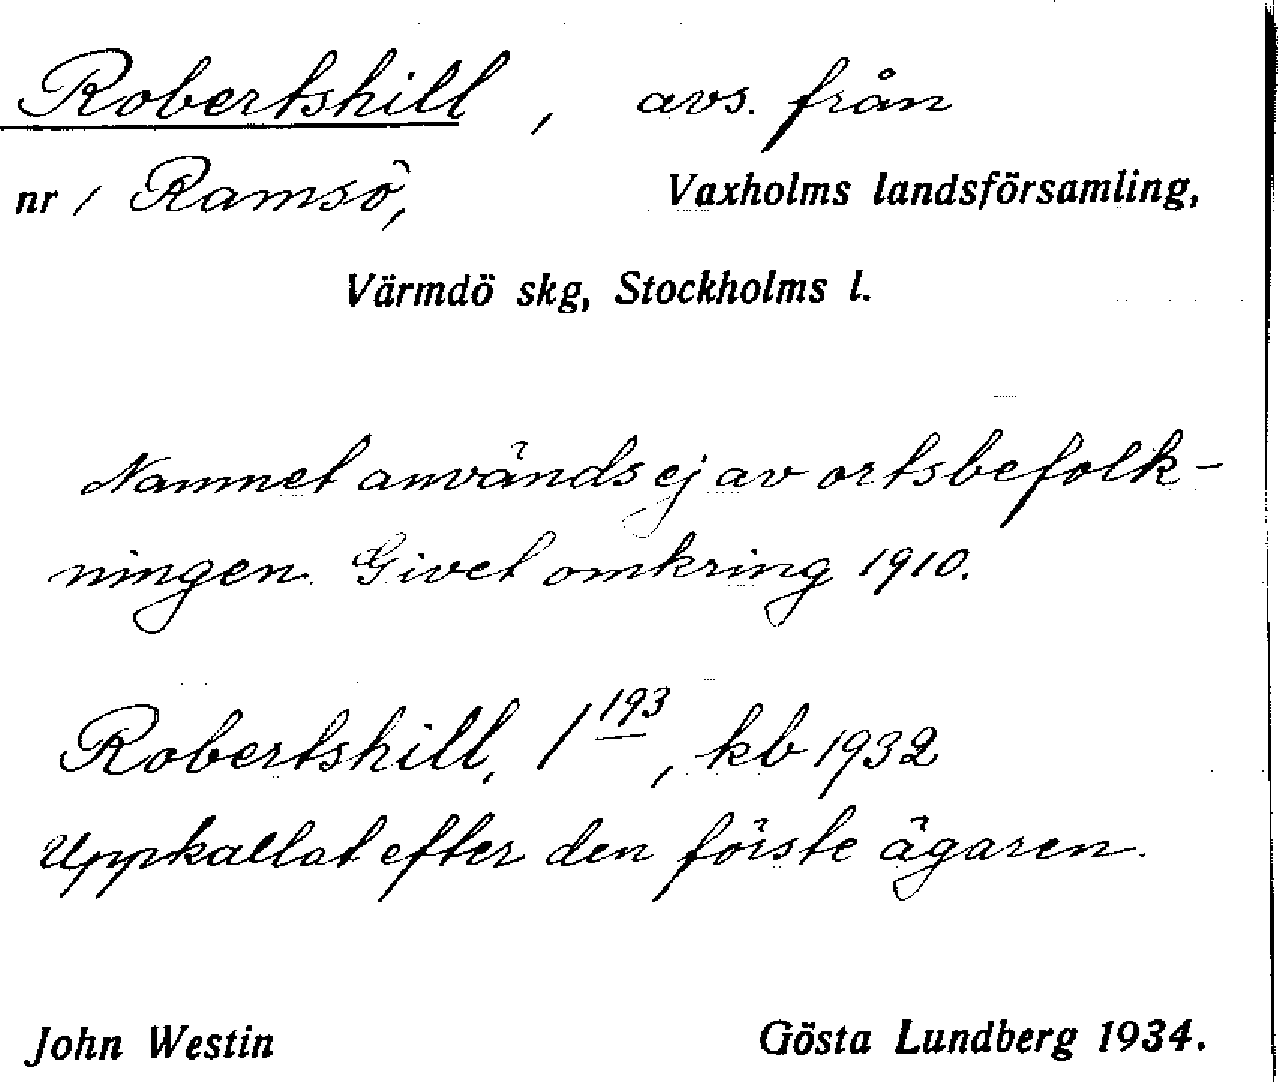 Robertshill, avs. från
nr 1 Ramsö, Vaxholms landsförsamling,
Värmdö skg, Stockholms l.
Namnet användsej av ortsbefolk-
ningen. Givet omkring 1910.
Robertshill, 1 193, kb 1932
Uppkallat efter den förste ägaren.
John Westin Gösta Lundberg 1934.